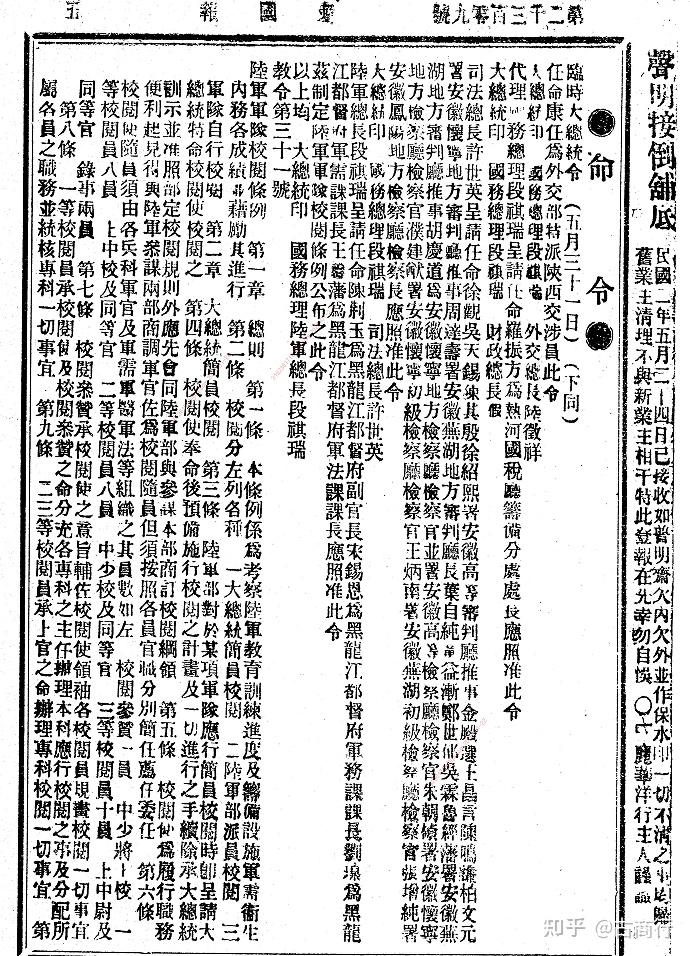 第二千三百零九號
愛國報
五
聲明接倒舖底
民國二年五月二十四日已接收如普明齋欠內欠外並作保水印一切不清之事
舊業主清理不與新業主相干特此登報在先幸勿自悞
麗華洋行主人謹
命令
(五月三十一日)(下同)
臨時大總統令
任命康任為外交部特派陝西交涉員此令
大總統印 國務總理段祺瑞 外交總長陸徵祥
代理國務總理段祺瑞呈請任命羅振方為熱河國稅廳籌備分處處長應照准此令
大總統印 國務總理段祺瑞 財政總長假
司法總長許世英呈請任命徐觀吳天錫陳其殷徐紹熙署安徽高等審判廳推事金殿選王昌言陳鴫謙柏文元
署安徽懷寧地方審判廳推事周達壽署安徽蕪湖地方審判廳長葉自純 益漸鄭世 吳霖魯經藩署安徽蕪
湖地方審判廳推事胡慶道為安徽懷寧地方檢察廳檢察官並署安徽高等檢察廳檢察官朱朝楨署安徽懷寧
地方檢察廳檢察官濮建猷署安徽懷寧初級檢察廳檢察官王炳南署安徽蕪湖初級檢察廳檢察官張增純署
安徽鳳陽地方檢察廳檢察長應照准此令
大總統印 國務總理段祺瑞 司法總長許世英
陸軍總長段祺瑞呈請任命陳荊玉為黑龍江都督府副官長宋錫恩為黑龍江都督府軍務課課長劉琅為黑龍
江都督府軍需課課長王 藩為黑龍江都督府軍法課課長應照准此令
茲制定陸軍軍隊校閱條例公布之此令
以上均 大總統印 國務總理陸軍總長段祺瑞
教令第三十一號
陸軍軍隊校閱條例 第一章 總則 第一條 本條例係為考察陸軍教育訓練進度及籌備設施軍需衛生
內務各成績並藉勵其進行 第二條 校閱分左列各種 一大總統簡員校閱 二陸軍部派員校閱 三
軍隊自行校閱 第二章 大總統簡員校閱 第三條 陸軍部對於某項軍隊應行簡員校閱時即呈請大
總統特命校閱使校閱之 第四條 校閱使奉命後預備施行校閱之計畫及一切進行之手續除承大總統
訓示並准照部定校閱規則外應先會同陸軍部與參謀本部商訂校閱綱領 第五條 校閱使為履行職務
便利起見得與陸軍參謀兩部商調軍官佐為校閱隨員但須按照各員官職分別簡任薦任委任 第六條
校閱使隨員須由各兵科軍官及軍需軍醫軍法等組織之其員數如左 校閱參贊一員 中少將上校 一
等校閱員八員 上中校及同等官 二等校閱員八員 中少校及同等官 三等校閱員十員 上中尉及
同等官 錄事兩員 第七條 校閱參贊承校閱使之意旨輔佐校閱使領袖各校閱員規畫校閱一切事宜
第八條 一等校閱員承校閱使及校閱參贊之命分充各專科之主任辦理本科應行校閱之事及分配所
屬各員之職務並統核專科一切事宜 第九條 二三等校閱員承上官之命辦理專科校閱一切事宜 第
知乎 @古商行